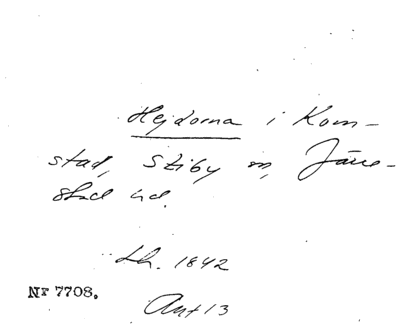 Hejdorna i Kom-
stad, Stiby sn, Järre-
stad hd.
Lh. 1842
Nr 7708.
Ant 13